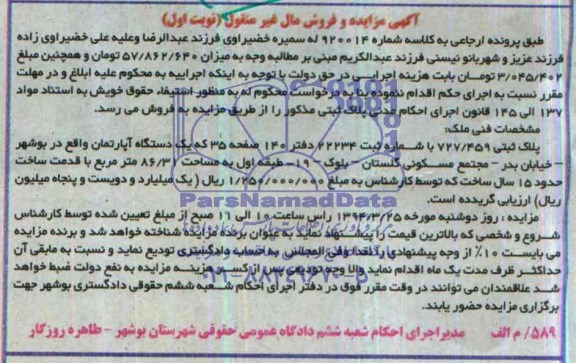 آگهی مزایده و فروش مال غیر منقول (نوبت اول)
طبق پرونده ارجاعی به کلاسه شماره ۹۲۰۰۱۴ له سمیره خضیراوی فرزند عبدالرضا وعلیه علی خضیراوی زاده
فرزند عزیز و شهربانو نیسنی فرزند عبدالکریم مبنی بر مطالبه وجه به میزان ۵۷/۸۶۲/۶۴۰ تومان و همچنین مبلغ
۳/۰۴۵/۴۰۲ تومان بابت هزینه اجرایی در حق دولت با توجه به اینکه اجراییه به محکوم علیه ابلاغ و در مهلت
مقرر نسبت به اجرای حکم اقدام ننموده بنا به درخواست محکوم له به منظور استیفاء حقوق خویش به استناد مواد
۱۳۷ الی ۱۴۵ قانون اجرای احکام مدنی پلاک ثبتی مذکور را از طریق مزایده به فروش می رسد.
مشخصات فنی ملک:
پلاک ثبتی ۷۲۷/۴۵۹ با شماره ثبت ۲۲۲۳۴ دفتر ۱۴۰ صفحه ۳۵ که یک دستگاه آپارتمان واقع در بوشهر
- خیابان بدر - مجتمع مسکونی گلستان - بلوک ۱۹ - طبقه اول به مساحت ۸۶/۳۰ متر مربع با قدمت ساخت
حدود ۱۵ سال ساخت که توسط کارشناس به مبلغ ۱/۲۵۰/۰۰۰/۰۰۰ ریال ( یک میلیارد و دویست و پنجاه میلیون
ریال) ارزیابی گردیده است.
ParsNamadData
مزایده : روز دوشنبه مورخه ۱۳۹۴/۳/۲۵ راس ساعت ۱۰ الی ۱۱ صبح از مبلغ تعیین شده توسط کارشناس
شروع و شخصی که بالاترین قیمت را پیشنهاد نماید به عنوان برنده مزایده شناخته خواهد شد و برنده مزایده
می بایست ۱۰٪ از وجه پیشنهادی را نقدا وفی المجلس به حساب دادگستری تودیع نماید و نسبت به مابقی آن
حداکثر ظرف مدت یک ماه اقدام نماید والا وجه تودیعی پس از کسر هزینه مزایده به نفع دولت ضبط خواهد
شد علاقمندان می توانند در وقت مقرر فوق در دفتر اجرای احکام شعبه ششم حقوقی دادگستری بوشهر جهت
برگزاری مزایده حضور یابند.
۵۸۹/ م الف مدیر اجرای احکام شعبه ششم دادگاه عمومی حقوقی شهرستان بوشهر - طاهره روزگار